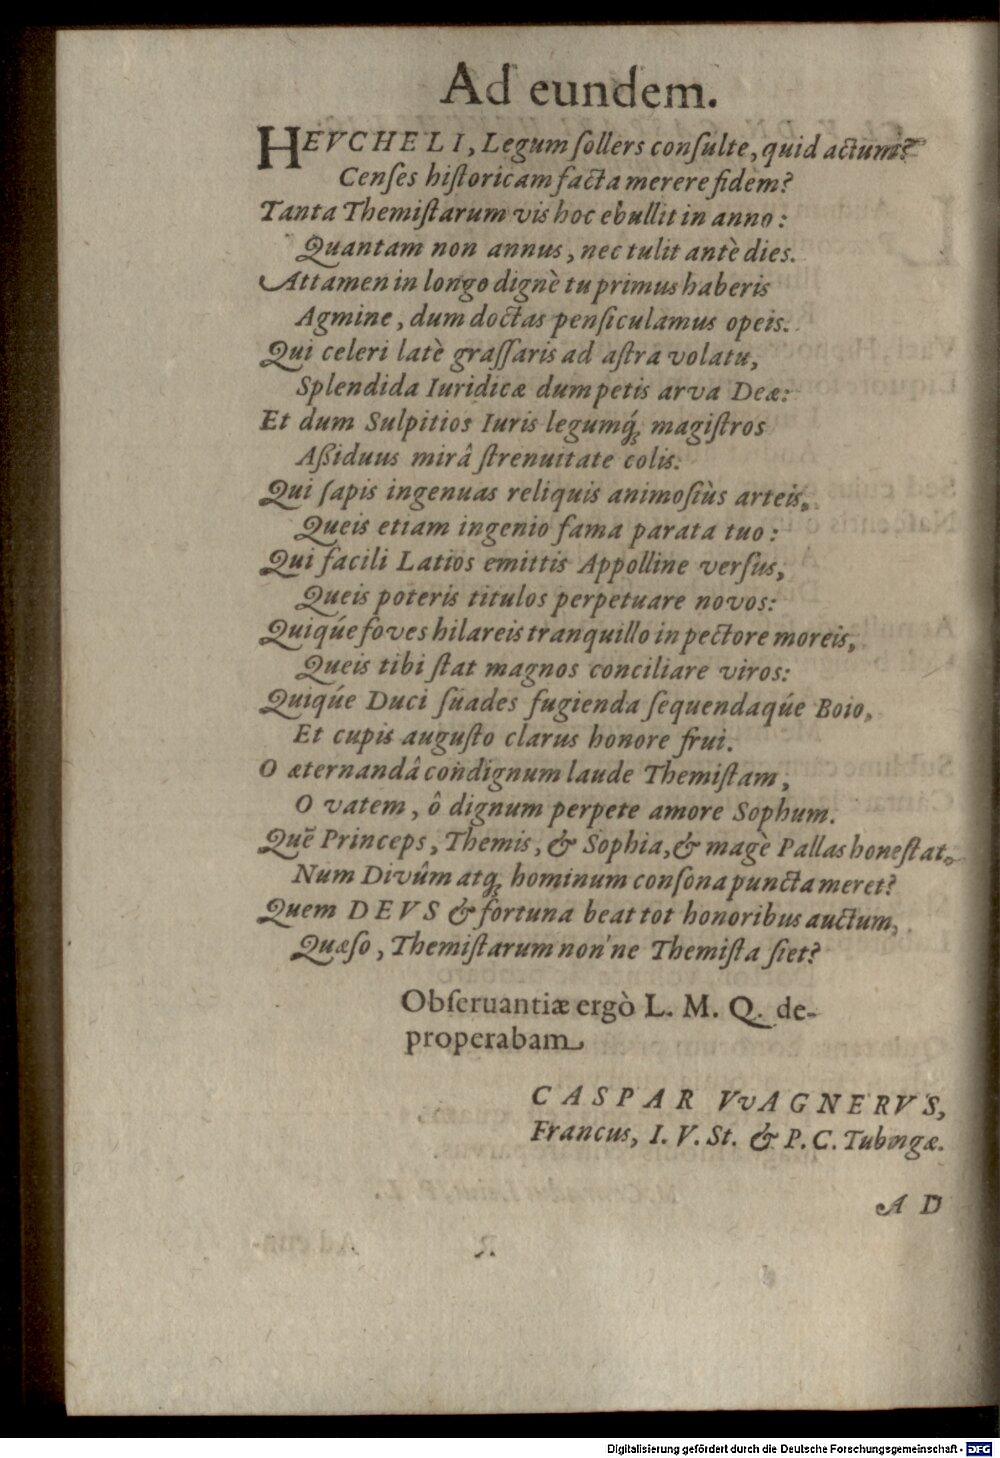 Ad eundem.
HEVCHELI, Legum ſollers conſulte, quid actum?
Cenſes hiſtoricam facta merere fidem?
Tanta Themiſtarum vis hoc ebullit in anno:
Quantam non annus, nec tulit antè dies.
Attamen in longo dignè tu primus haberis
Agmine, dum doctas penſiculamus opeis.
Qui celeri latè graſſaris ad aſtra volatu,
Splendida Iuridicæ dum petis arva Deæ:
Et dum Sulpitios Iuris legumq́; magiſtros
Aßiduus mirâ ſtrenuitate colis.
Qui ſapis ingenuas reliquis animoſiùs arteis,
Queis etiam ingenio fama parata tuo:
Qui facili Latios emittis Appolline verſus,
Queis poteris titulos perpetuare novos:
Quiqúe foves hilareis tranquillo in pectore moreis,
Queis tibi ſtat magnos conciliare viros:
Quiqúe Duci ſüades fugienda ſequendaqúe Boio,
Et cupis auguſto clarus honore frui.
O æternandâ condignum laude Themiſtam,
O vatem, ô dignum perpete amore Sophum.
Quẽ Princeps, Themis, & Sophia, & magè Pallas honeſtat,
Num Divûm atq; hominum conſona puncta meret?
Quem DEVS & fortuna beat tot honoribus auctum,
Quæſo, Themiſtarum non'ne Themiſta ſiet?
Obſeruantiæ ergò L. M. Q. de-
properabam
CASPAR VvAGNERVS,
Francus, I. V. St. & P. C. Tubingæ.
AD
Digitalisierung gefördert durch die Deutsche Forschungsgemeinschaft - DFG